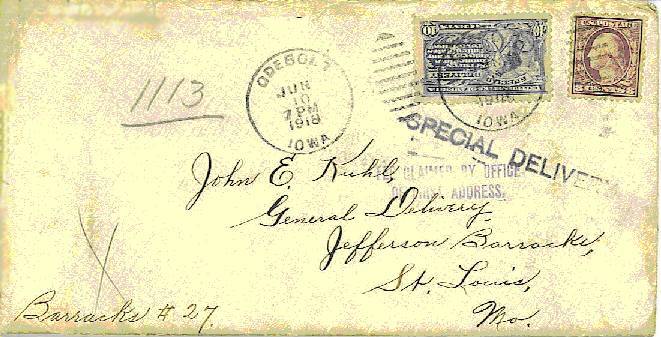 1113
ODEBOLT
JUN
10
7 PM
1918
IOWA
1918
IOWA
SPECIAL DELIVERY
CLAIMED BY OFFICE
ADDRESS.
John E. Kuhl,
General Delivery
Jefferson Barracks,
St. Louis,
Mo.
Barracks # 27.